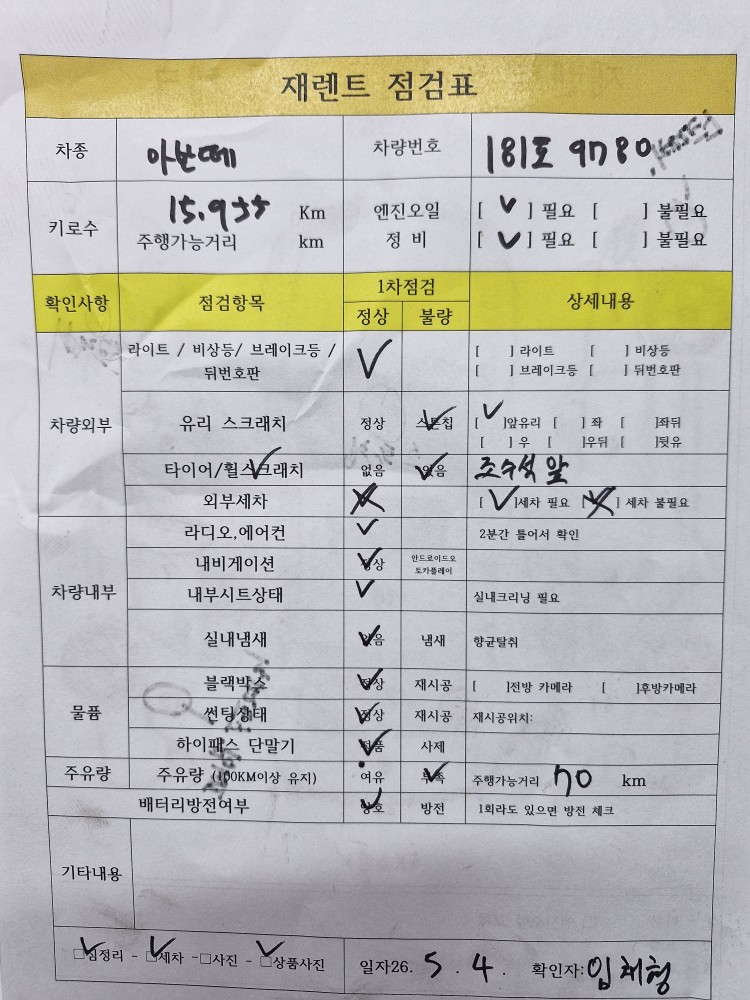 재렌트 점검표
차종 아반떼 차량번호 181호 9780
키로수 15.955 Km 엔진오일 [ ✓ ] 필요 [ ] 불필요
주행가능거리 km 정 비 [ ✓ ] 필요 [ ] 불필요
확인사항 점검항목 1차점검 상세내용
정상 불량
차량외부 라이트 / 비상등/ 브레이크등 / ✓ [ ] 라이트 [ ] 비상등
뒤번호판 [ ] 브레이크등 [ ] 뒤번호판
유리 스크래치 정상 스톤칩 ✓ [ ✓ ]앞유리 [ ] 좌 [ ]좌뒤
[ ] 우 [ ]우뒤 [ ]뒷유
타이어/휠스크래치 ✓ 없음 있음 ✓ 조수석 앞
외부세차 [ ✓ ]세차 필요 [ ] 세차 불필요
차량내부 라디오,에어컨 ✓ 2분간 틀어서 확인
내비게이션 정상 ✓ 안드로이드오
토카플레이
내부시트상태 ✓ 실내크리닝 필요
실내냄새 없음 ✓ 냄새 향균탈취
물품 블랙박스 정상 ✓ 재시공 [ ]전방 카메라 [ ]후방카메라
썬팅상태 정상 ✓ 재시공 재시공위치:
하이패스 단말기 정품 ✓ 사제
주유량 주유량 (100KM이상 유지) 여유 부족 ✓ 주행가능거리 70 km
배터리방전여부 양호 ✓ 방전 1회라도 있으면 방전 체크
기타내용
□짐정리 ✓ - □세차 ✓ -□사진 - □상품사진 ✓ 일자26. 5 . 4 . 확인자:임채청